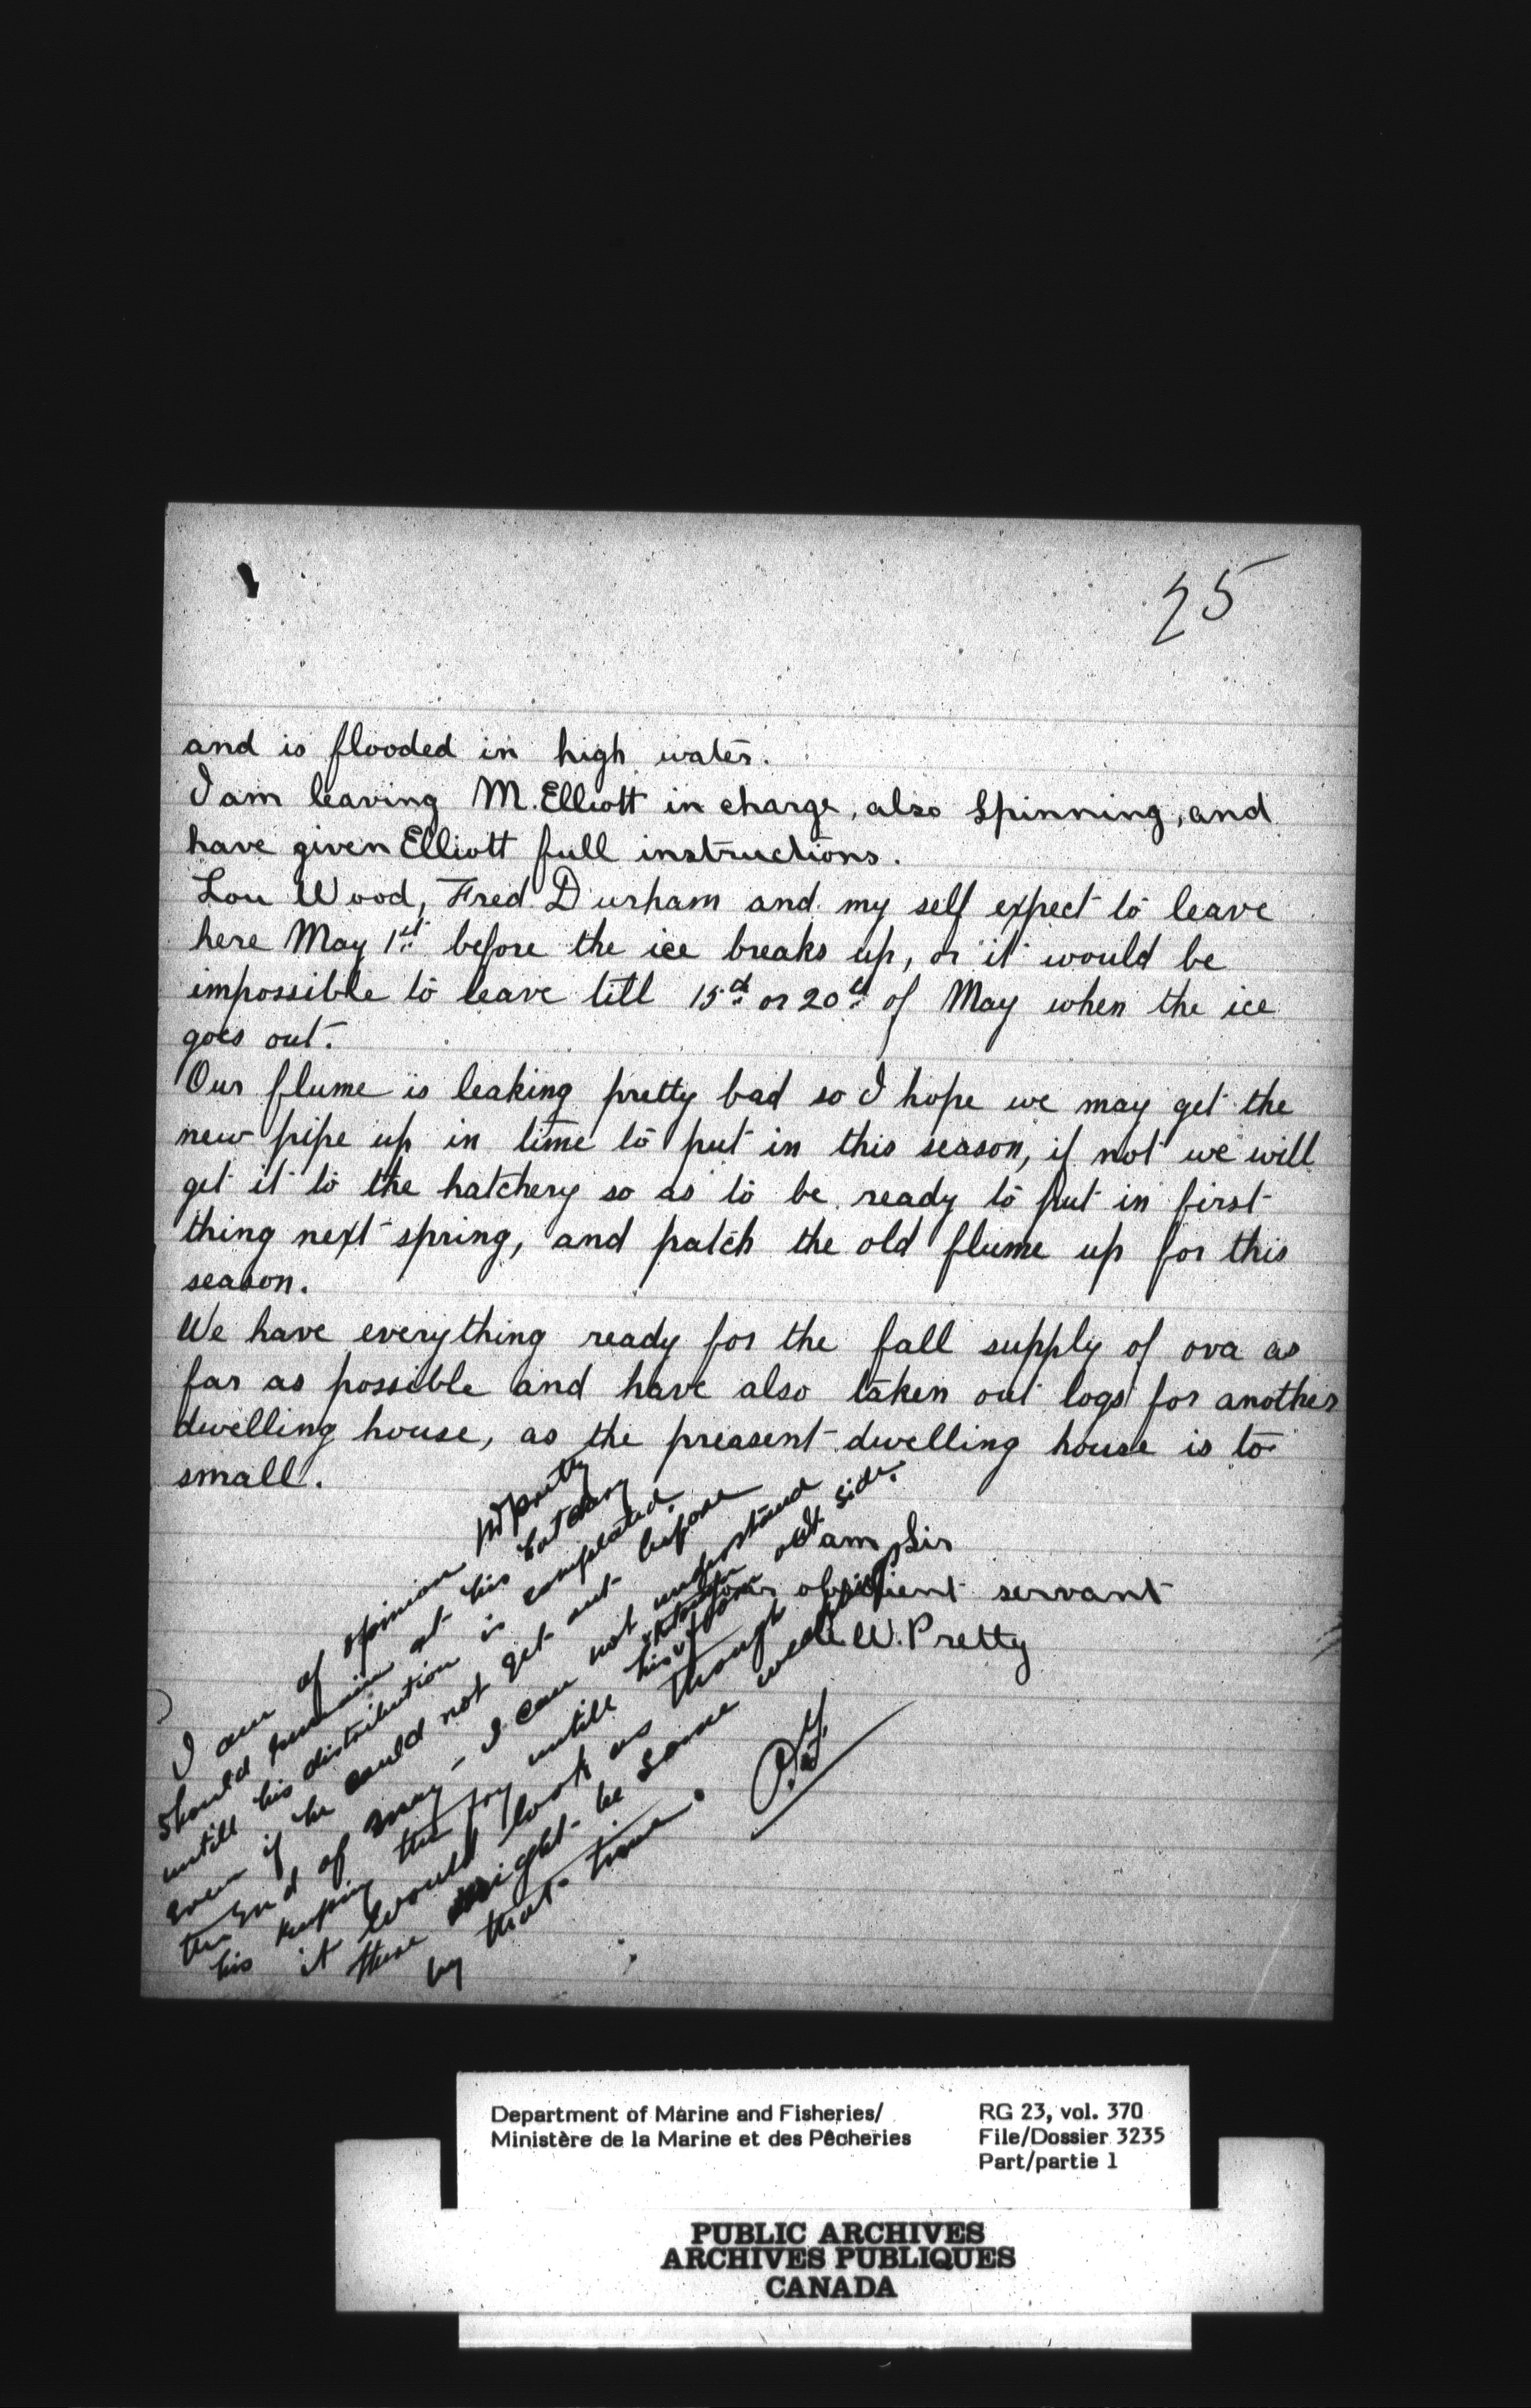 25
and is flooded in high water.
I am leaving M. Elliott in charge, also Spinning, and
have given Elliott full instructions.
Lou Wood, Fred Durham and my self expect to leave
here May 1st before the ice breaks up, or it would be
impossible to leave till 15th or 20th of May when the ice
goes out.
Our flume is leaking pretty bad so I hope we may get the
new pipe up in time to put in this season, if not we will
get it to the hatchery so as to be ready to put in first
thing next spring, and patch the old flume up for this
season.
We have everything ready for the fall supply of ova as
far as possible and have also taken out logs for another
dwelling house, as the preasent dwelling house is to
small.
I am Sir
obedient servant
W. Pretty
I am of opinion Mr Pretty
should remain at his hatchery
untill his distribution is completed
even if he could not get out before
the end of May - I can not understand
his keeping the fry untill his out side.
it would look as though
there might be some
by that time.
Department of Marine and Fisheries/
Ministère de la Marine et des Pêcheries
RG 23, vol. 370
File/Dossier 3235
Part/partie 1
PUBLIC ARCHIVES
ARCHIVES PUBLIQUES
CANADA